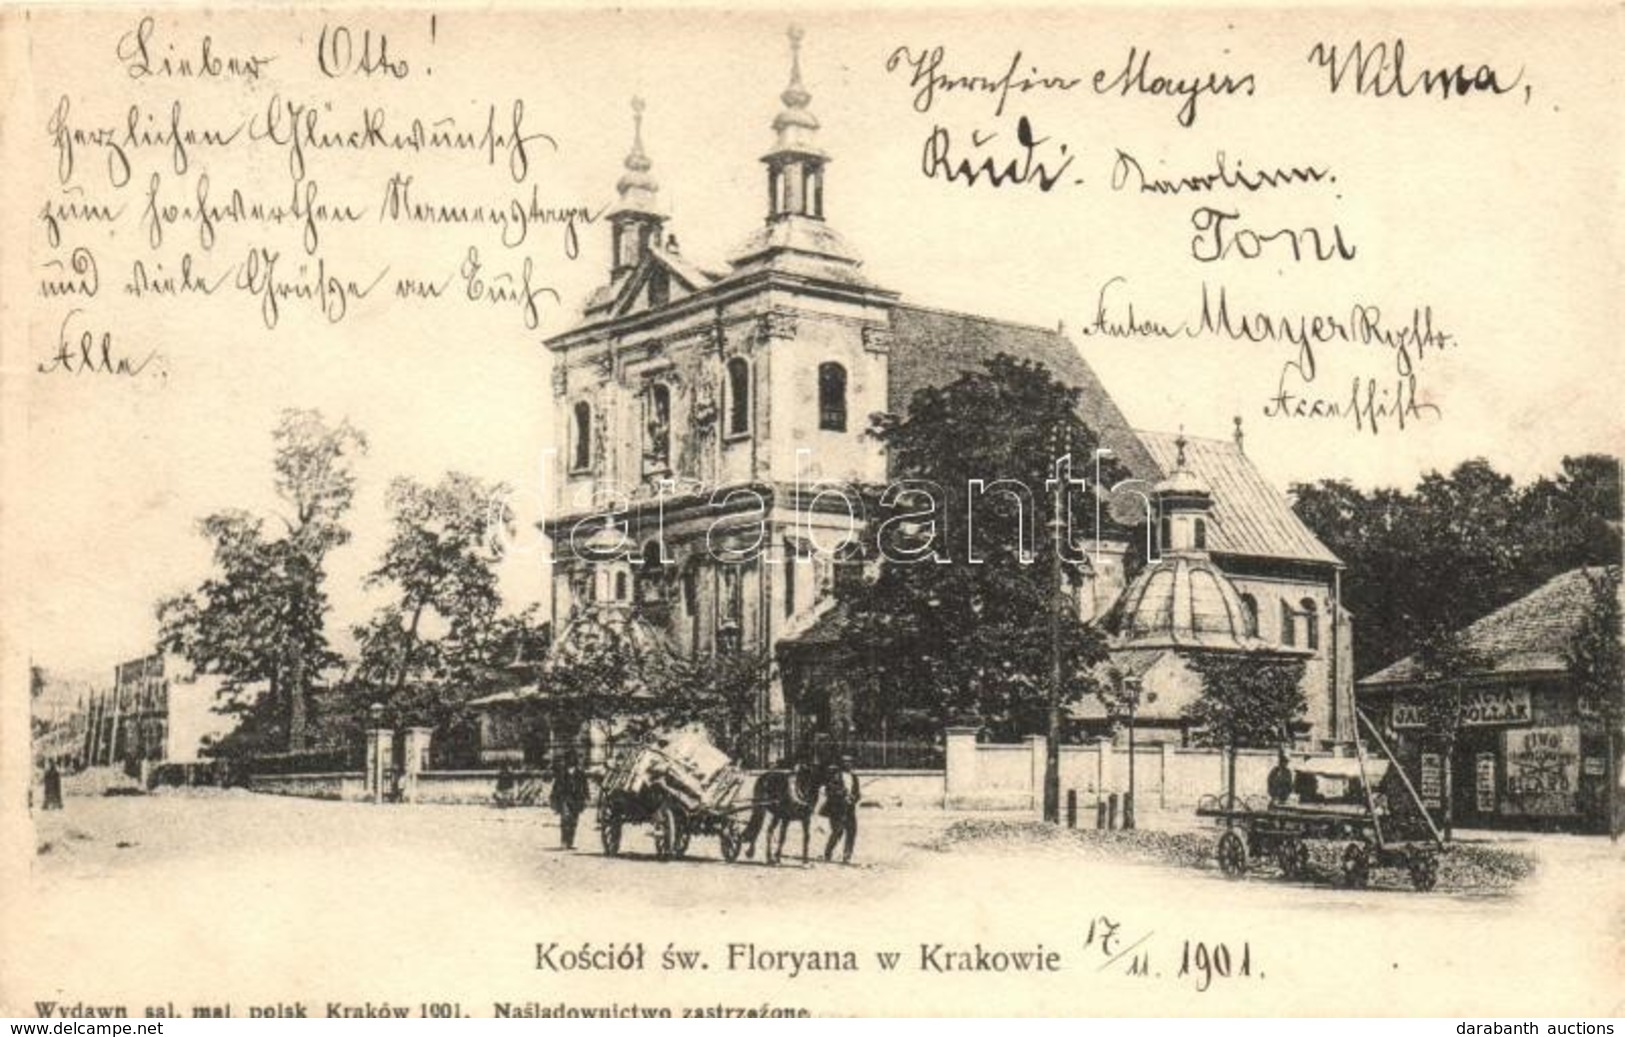 Lieber Otto!
Herzlichen Glückwünsch
zum hochwerthen Namenstage
und viele Grüße an Euch
Alle.
Theresia Mayer Wilma,
Rudi. Karolina.
Toni
Anton Mayer
Accessist
darabanth
JAK POLLAK
PIWO
Kościół św. Floryana w Krakowie 17./11. 1901.
Wydawn sal. mal. polsk Kraków 1901. Naśladownictwo zastrzeżone.
www.delcampe.net
darabanth auctions